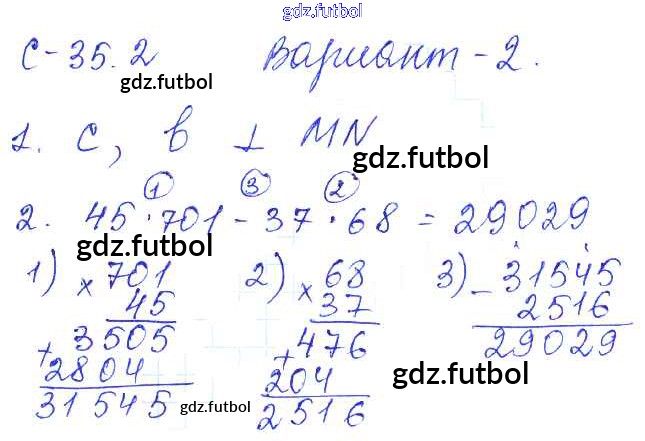 gdz.futbol
С-35.2 Вариант-2.
gdz.futbol
1. c, b ⊥ MN
gdz.futbol
① ③ ②
2. 45·701-37·68=29029
gdz.futbol
1) × 701 2) × 68 3) - 31545
45 37 2516
+ 3505 + 476 29029
2804 204 gdz.futbol
31545 gdz.futbol 2516